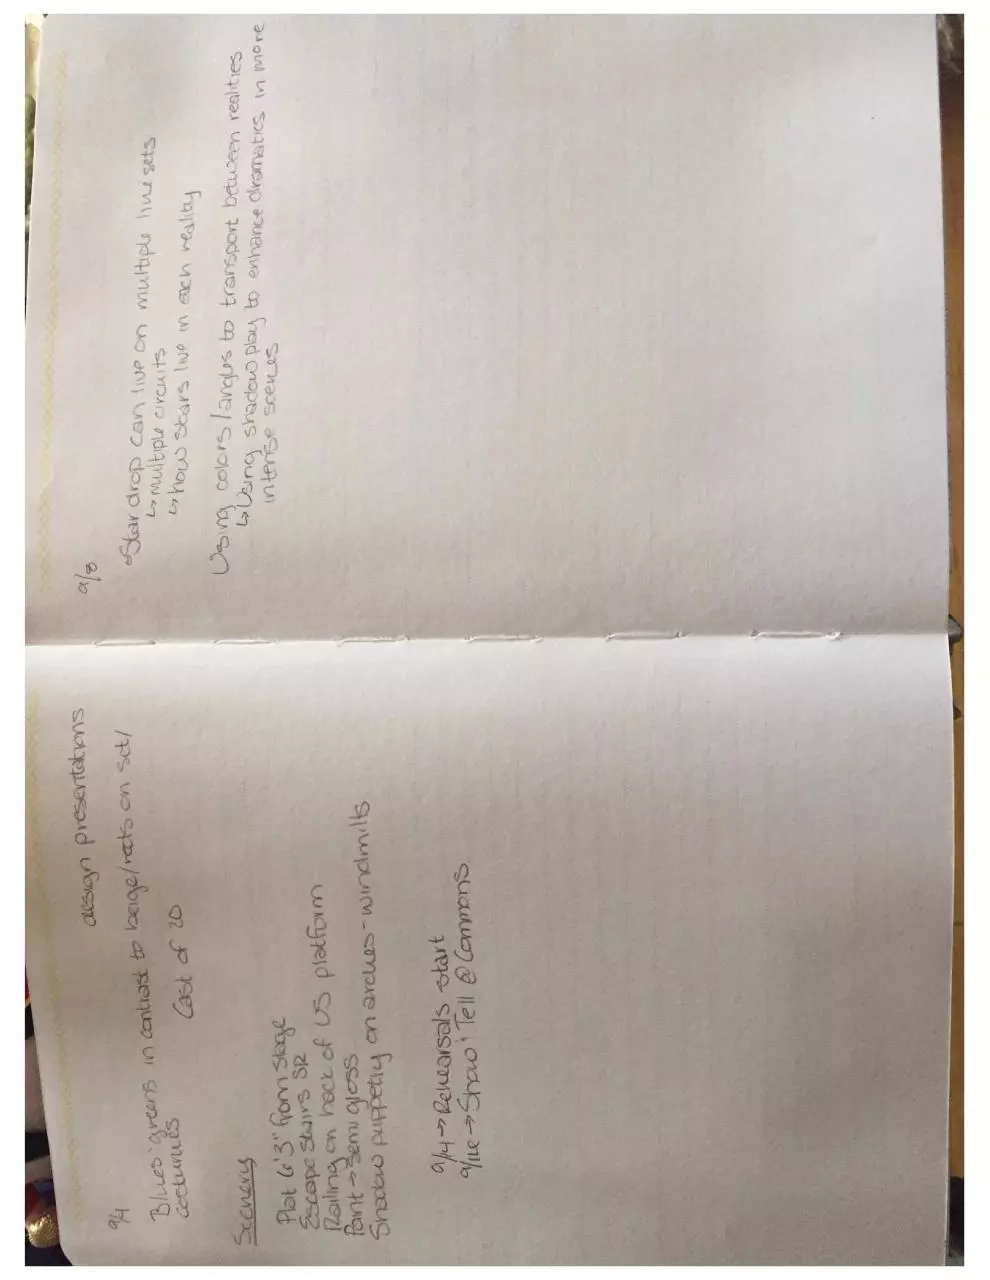 9/4
design presentations
Blues & greens in contrast to beige/reds on set/
costumes
Cast of 20
Scenery
Plat 6'3" from stage
Escape Stairs SR
Railing on back of US platform
Paint → Semi gloss
Shadow puppetry on arches - windmills
9/4 → Rehearsals start
9/16 → Show & Tell @ Commons
9/8
Star drop can live on multiple line sets
↳ multiple circuits
↳ how stars live in each reality
Using colors/angles to transport between realities
↳ Using shadow play to enhance dramatics in more
intense scenes